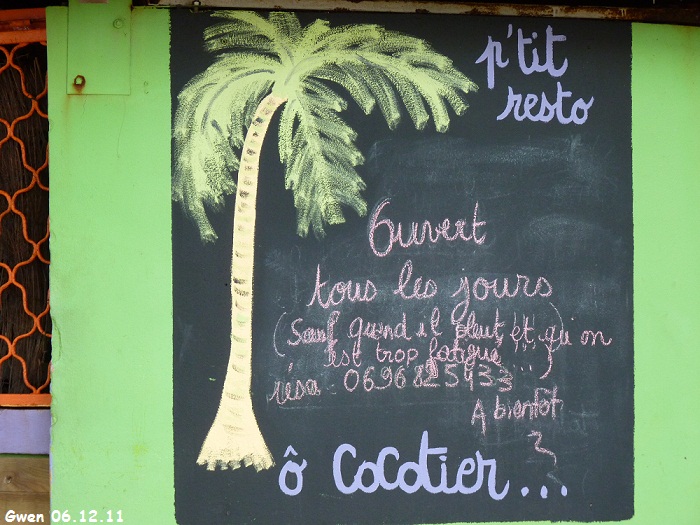 p'tit
resto
Ouvert
tous les jours
(Sauf quand il pleut, et qu'on
est trop fatigué !!...)
résa 0696 82 54 33
A bientôt
ô cocotier...
Gwen 06.12.11